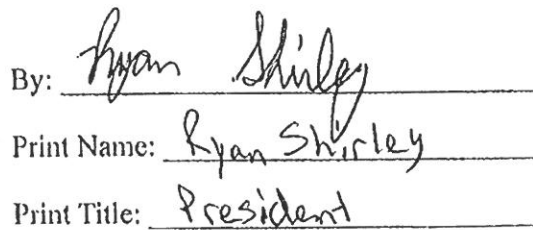 By: Ryan Shirley
Print Name: Ryan Shirley
Print Title: President